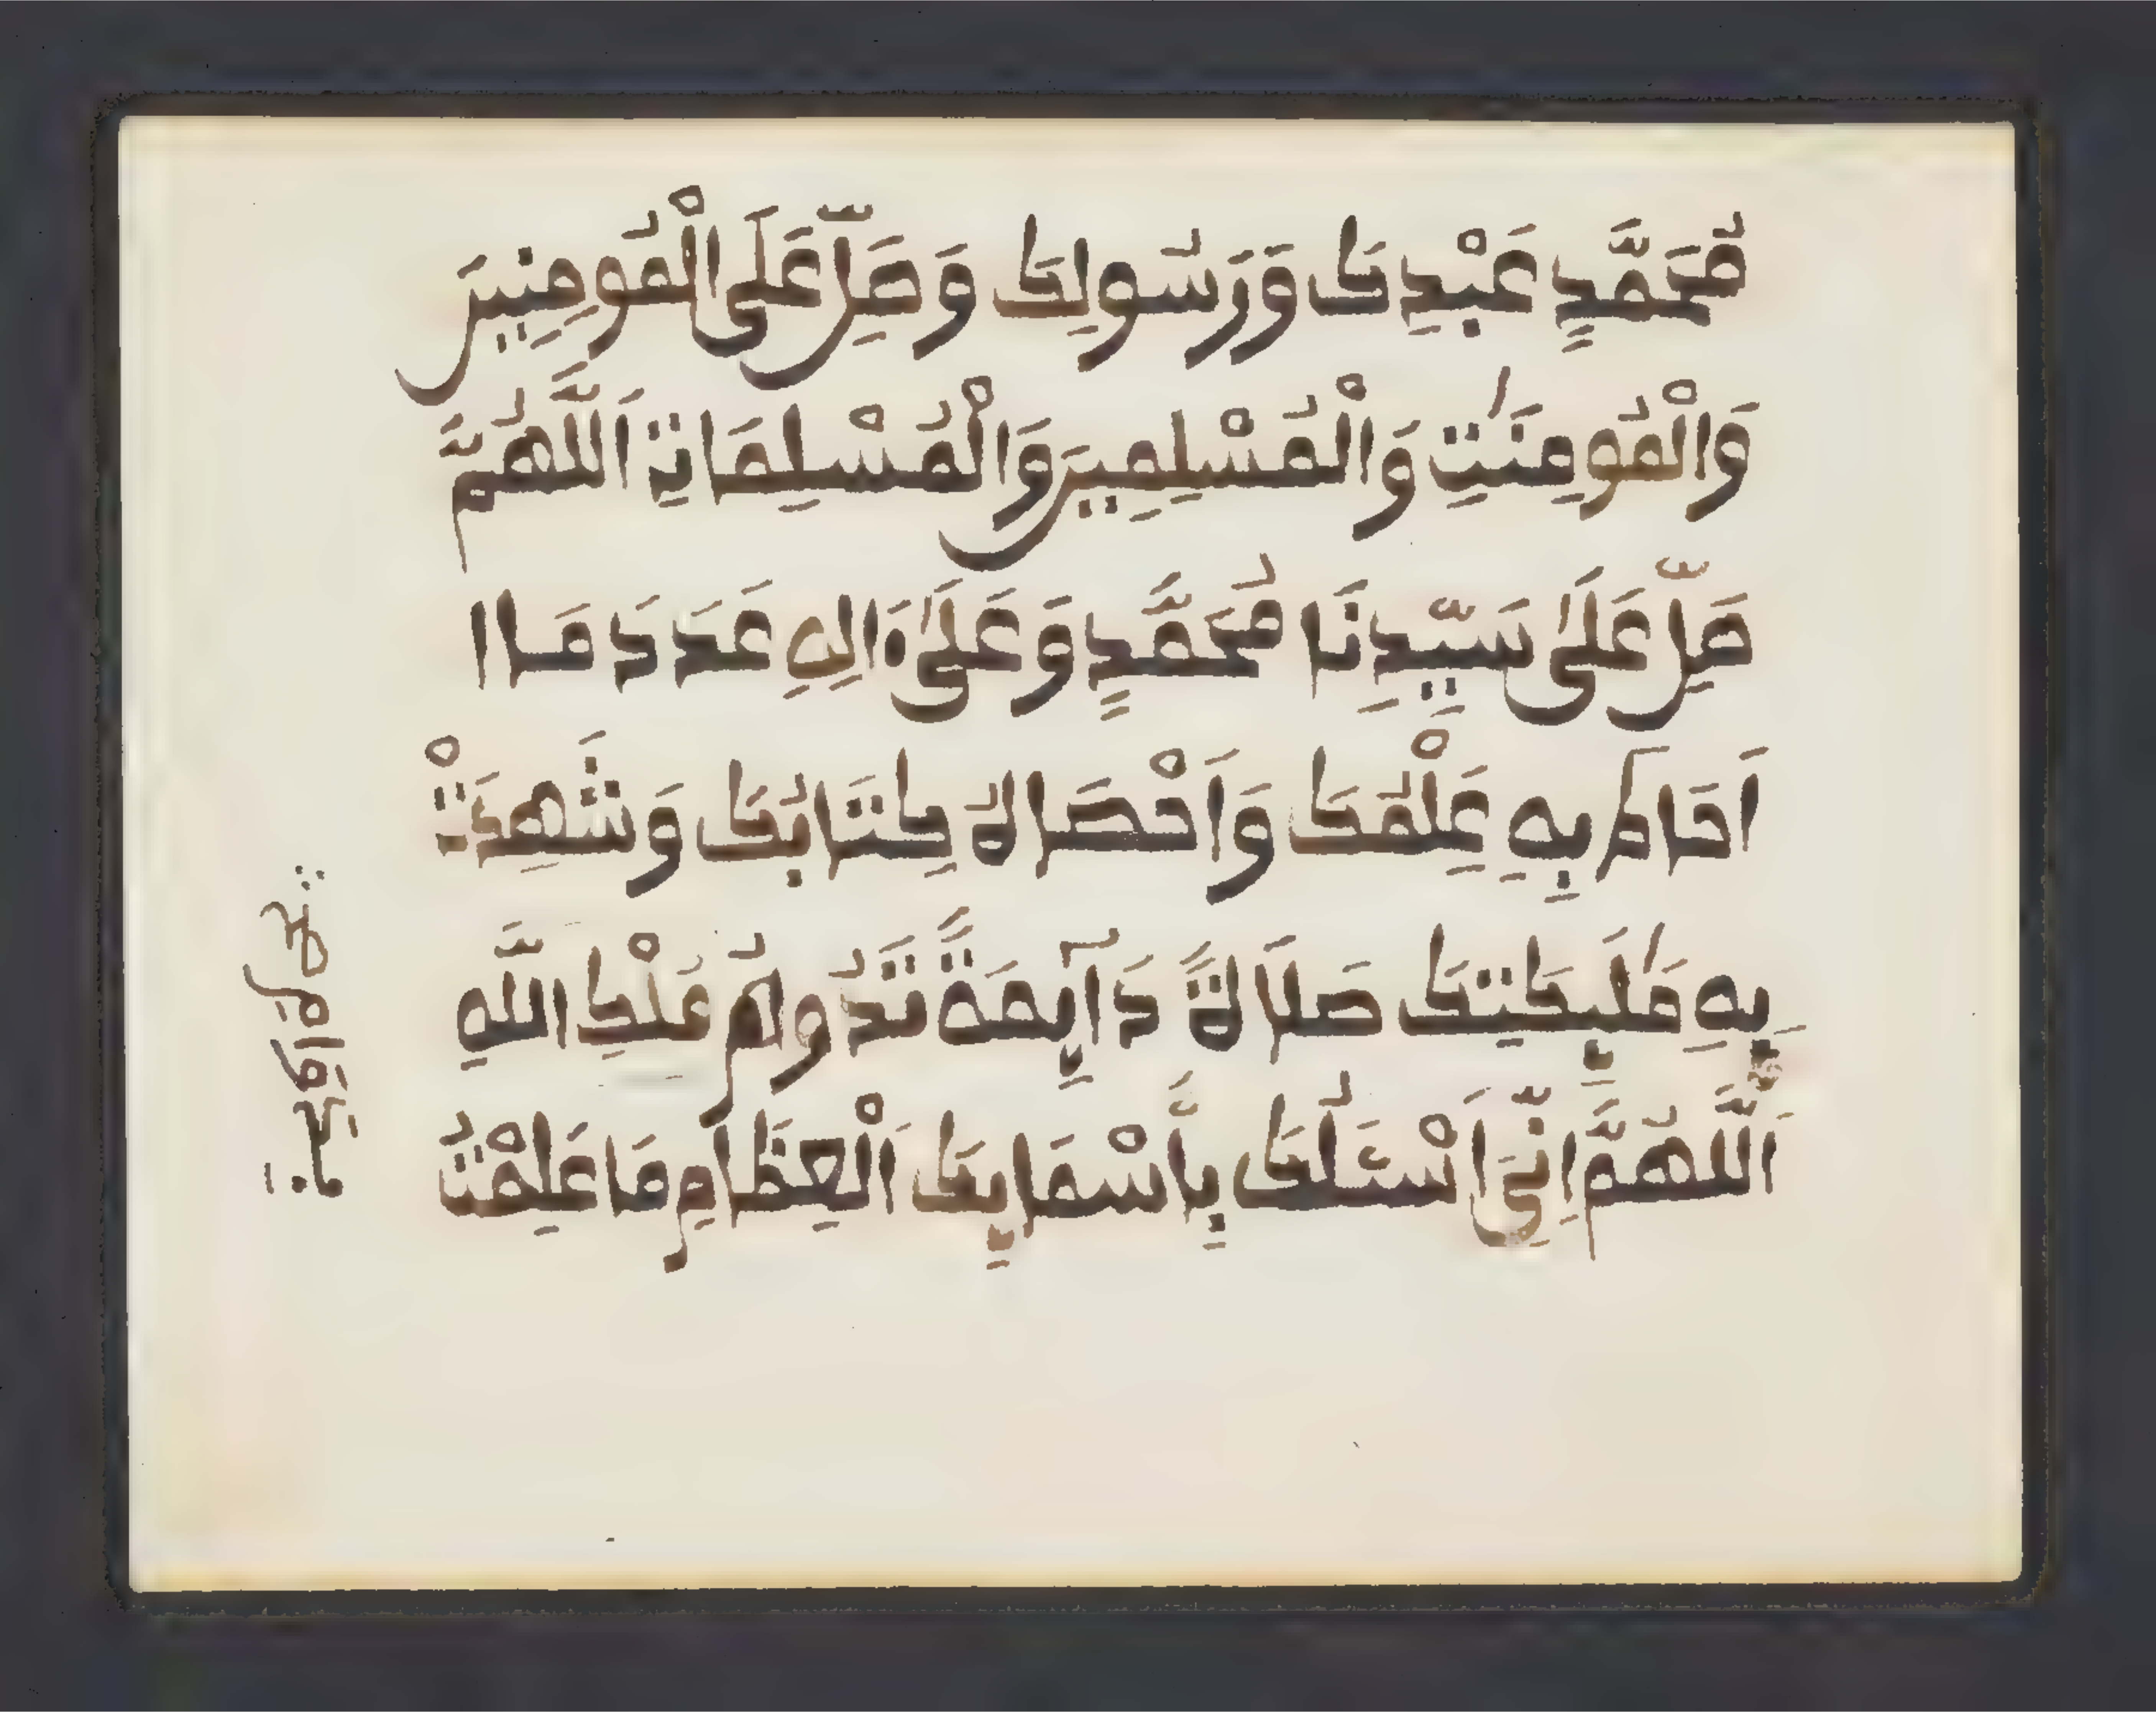 مُحَمَّدٍ عَبْدِكَ وَرَسُولِكَ وَصَلِّ عَلَى الْمُومِنِينَ
وَالْمُومِنَٰتِ وَالْمُسْلِمِينَ وَالْمُسْلِمَاتِ اَللَّهُمَّ
صَلِّ عَلَىٰ سَيِّدِنَا مُحَمَّدٍ وَعَلَىٰ ءَالِهِ عَدَدَ مَا
اَحَاطَ بِهِ عِلْمُكَ وَاَحْصَاهُ كِتَابُكَ وَشَهِدَتْ
بِهِ مَلَٰئِكَتِكَ صَلَاةً دَآئِمَةً تَدُومُ مُلْكِ اللَّهِ
اَللَّهُمَّ اِنِّيَ اَسْـَٔلُكَ بِأَسْمَائِكَ اَلْعِظَامِ مَا عَلِمْتُ